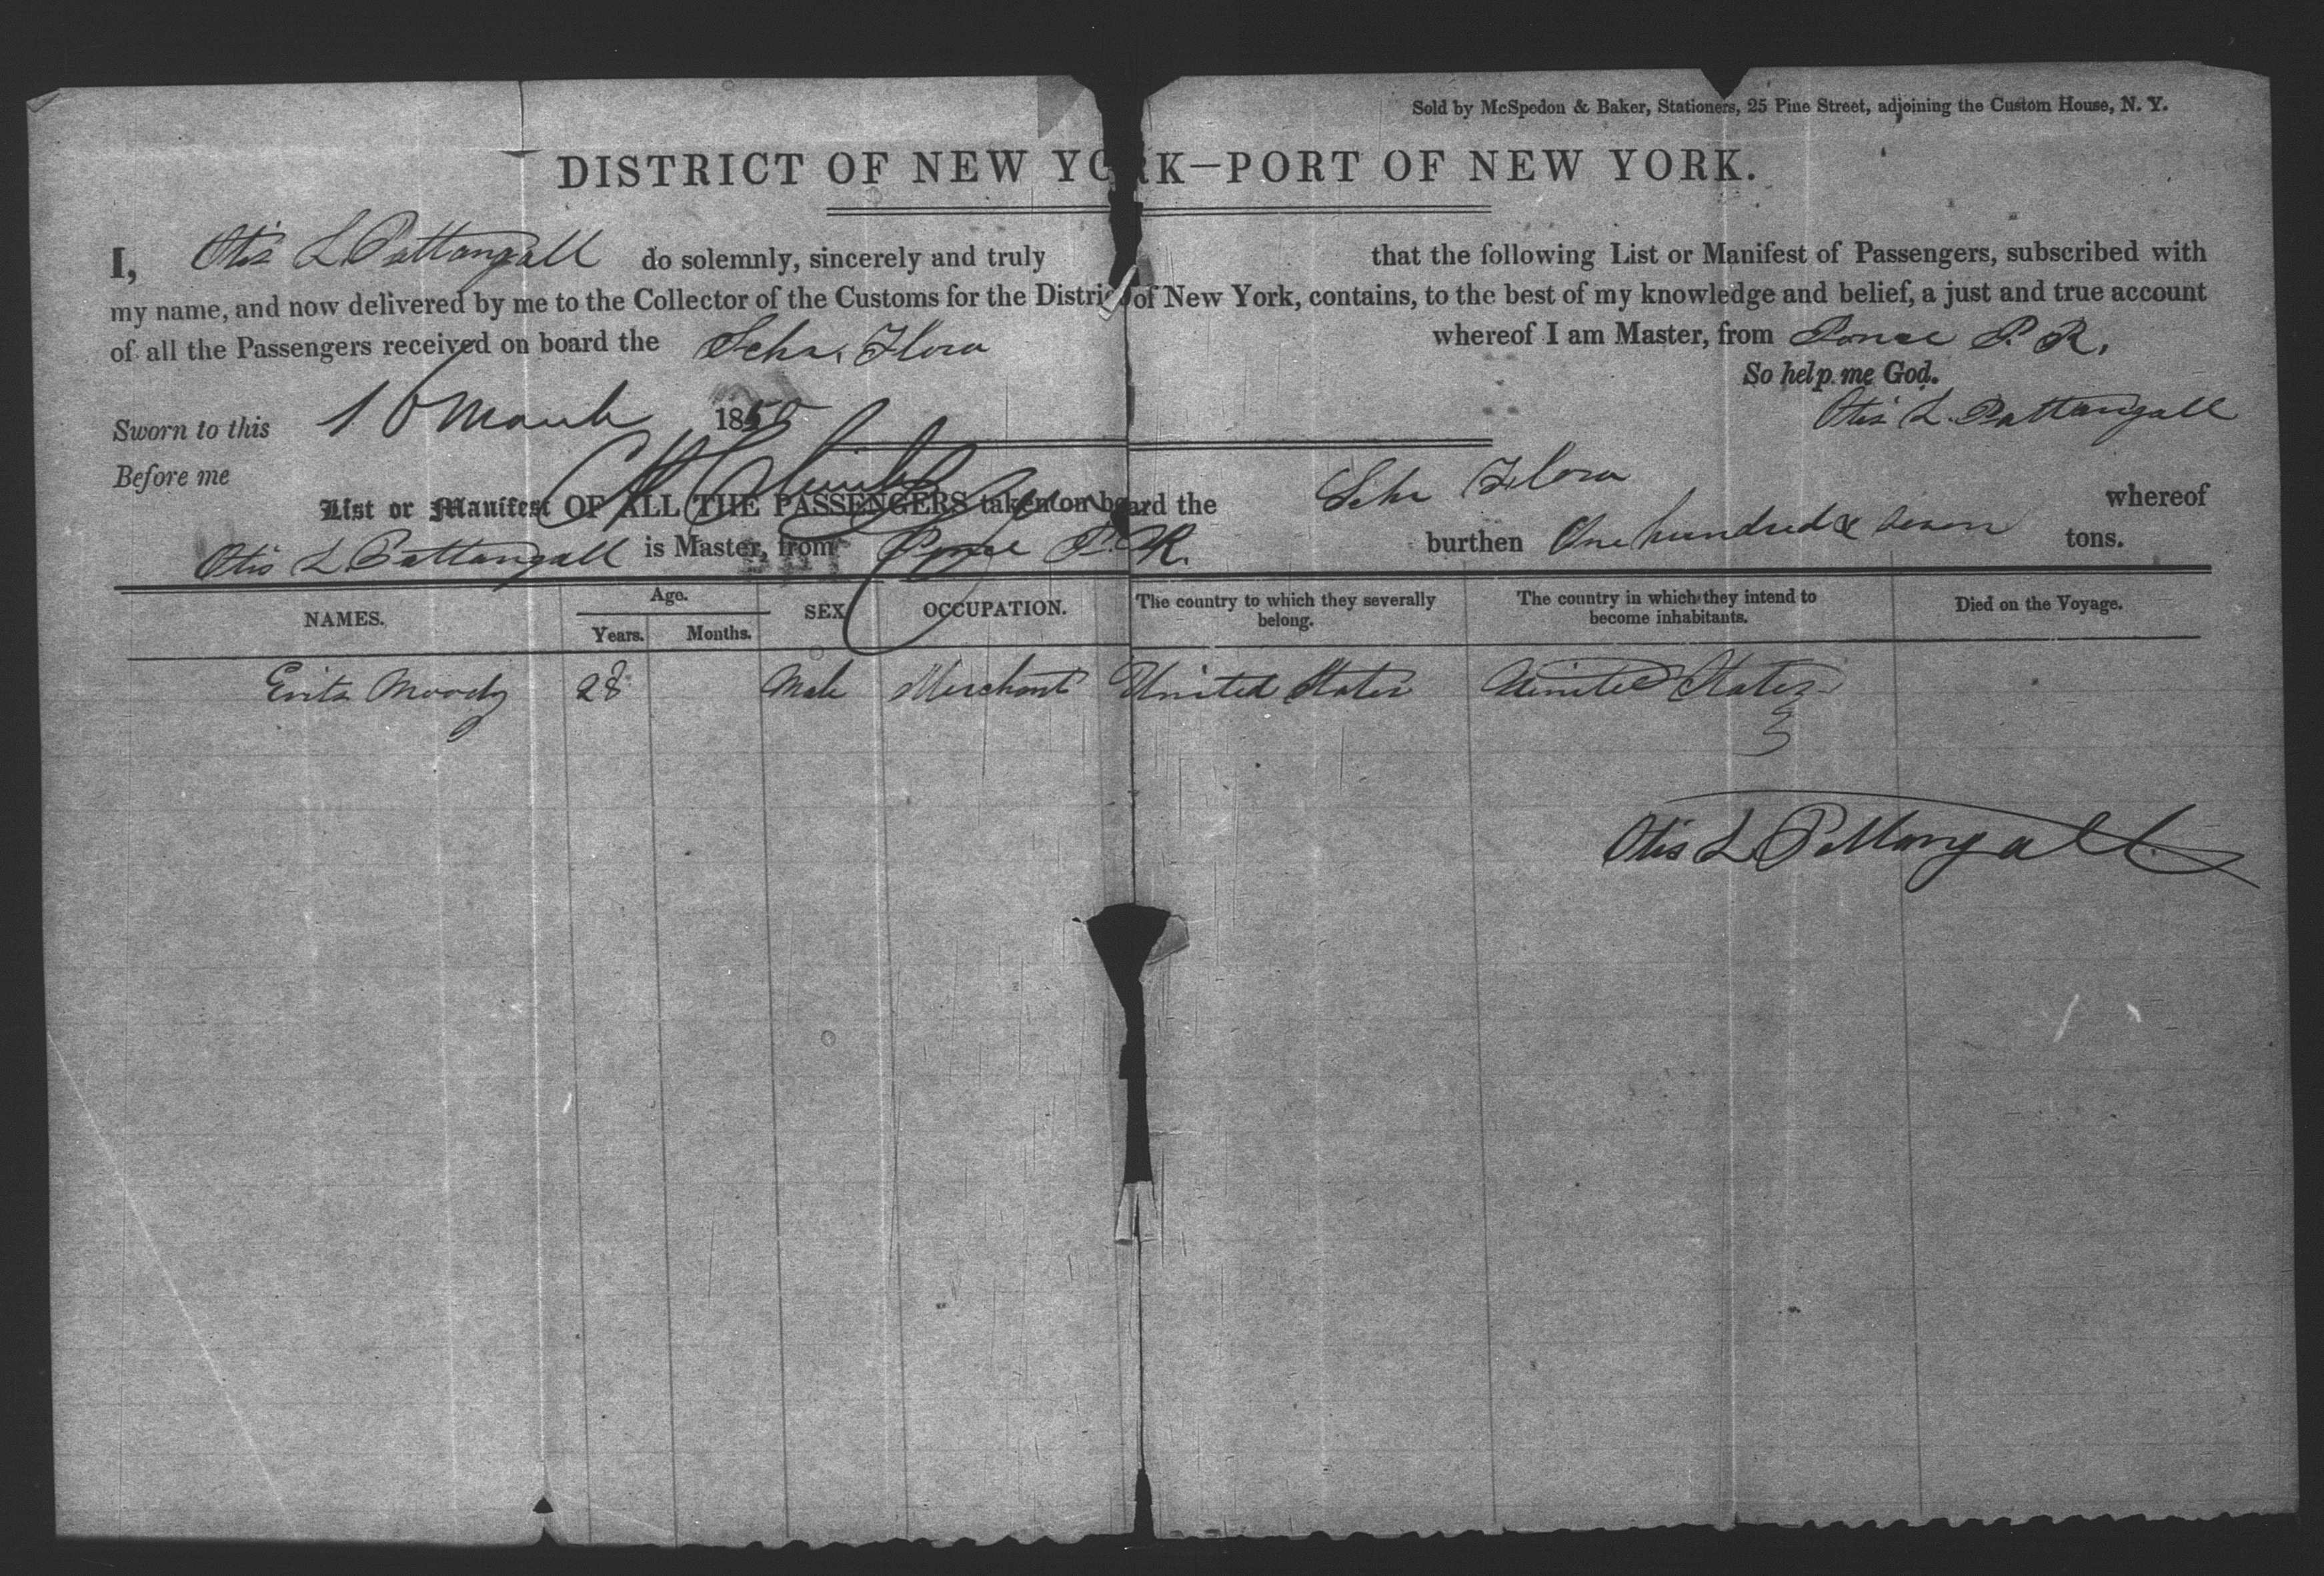 Sold by McSpedon & Baker, Stationers, 25 Pine Street, adjoining the Custom House, N. Y.
DISTRICT OF NEW YORK—PORT OF NEW YORK.
I, Otis L Pattangall do solemnly, sincerely and truly that the following List or Manifest of Passengers, subscribed with
my name, and now delivered by me to the Collector of the Customs for the District of New York, contains, to the best of my knowledge and belief, a just and true account
of all the Passengers received on board the Schr. Flora whereof I am Master, from Ponce P. R.
So help me God.
Sworn to this 16 March 1850 Otis L. Pattangall
Before me
List or Manifest OF ALL THE PASSENGERS taken on board the Schr Flora whereof
Otis L Pattangall is Master, from Ponce P. R. burthen One hundred & seven tons.
NAMES. Age. Years. Months. SEX OCCUPATION. The country to which they severally belong. The country in which they intend to become inhabitants. Died on the Voyage.
Moody 28 Male Merchant United States United States
Otis L Pattangall